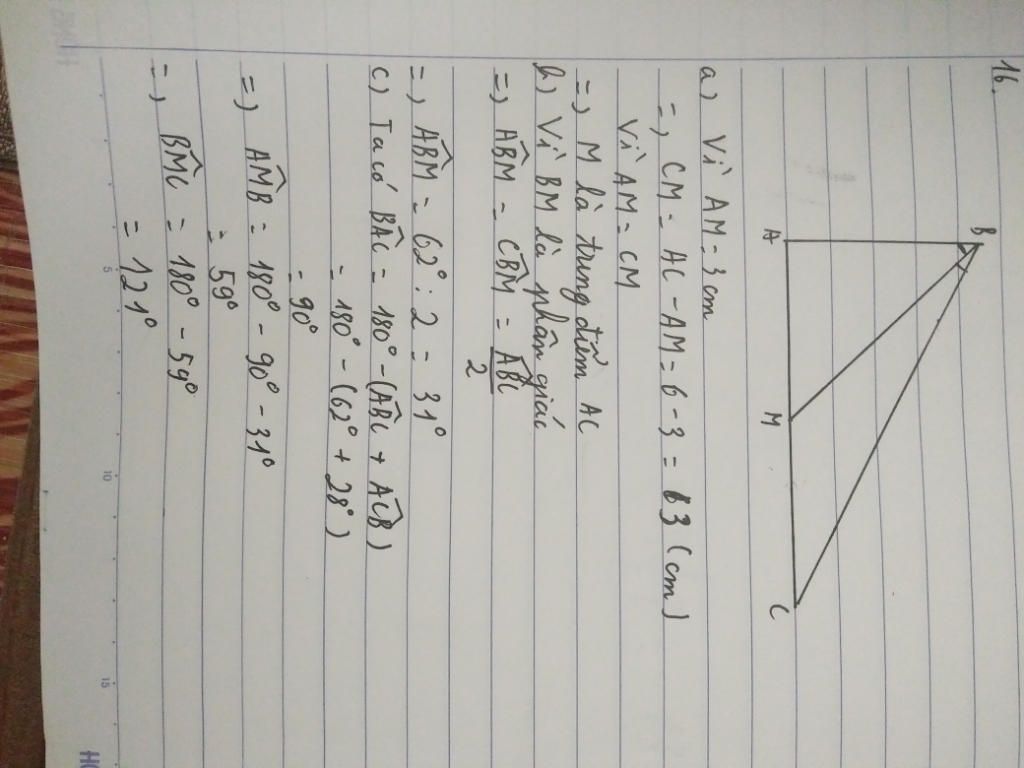 16.
B
A
M
C
a) Vì AM = 3 cm
=) CM = AC - AM = 6 - 3 = 3 (cm)
Vì AM = CM
=) M là trung điểm AC
b) Vì BM là phân giác
=) ABM̂ = CBM̂ = ABĈ / 2
=) ABM̂ = 62° : 2 = 31°
c) Ta có BAĈ = 180° - (ABĈ + ACB̂)
= 180° - (62° + 28°)
= 90°
=) AMB̂ = 180° - 90° - 31°
= 59°
=) BMĈ = 180° - 59°
= 121°
5
10
15